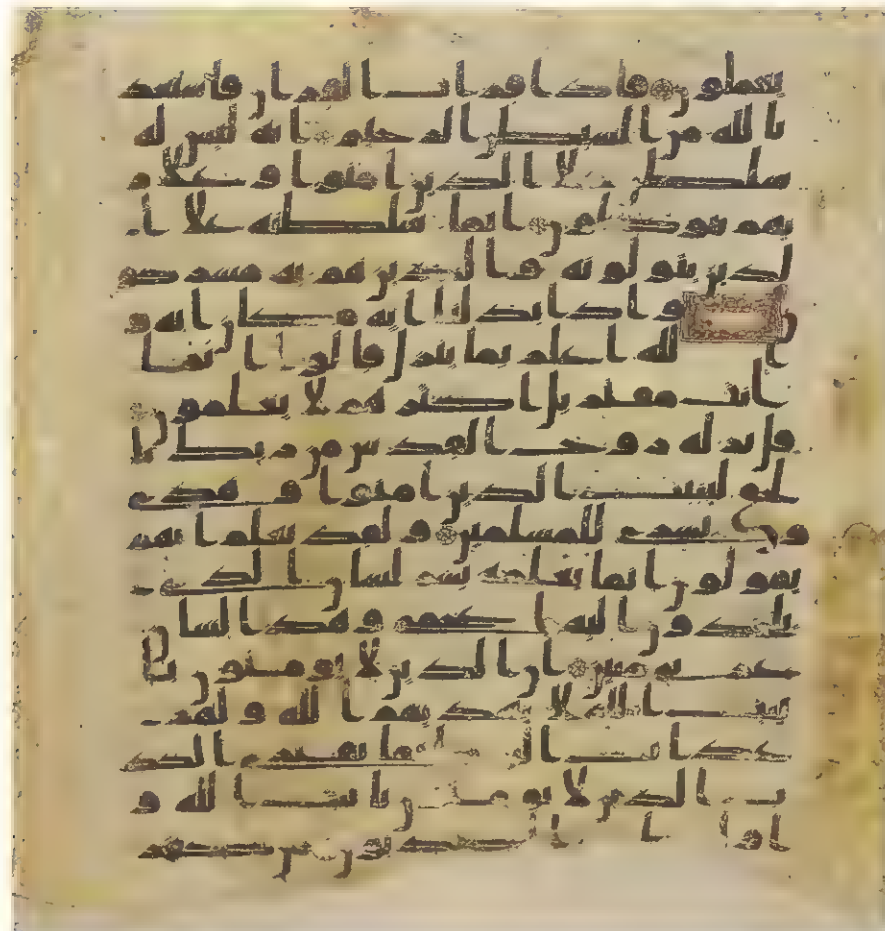 يعملون فاذا قرات القران فاستعذ
بالله من الشيطن الرجيم انه ليس له
سلطن علا الذين امنوا وعلا ر
بهم يتوكلون انما سلطنه علا ا
لذين يتولونه والذين هم به مشركو
ن واذا بدلنا اية مكان اية و
الله اعلم بما ينزل قالوا انما
انت مفتر بل اكثرهم لا يعلمون
قل نزله روح القدس من ربك با
لحق ليثبت الذين امنوا وهدى
وبشرى للمسلمين ولقد نعلم انهم
يقولون انما يعلمه بشر لسان الذي
يلحدون اليه اعجمي وهذا لسان
عربي مبين ان الذين لا يومنون با
يت الله لا يهديهم الله ولهم
عذاب اليم انما يفتري الكذ
ب الذين لا يومنون بايت الله و
اولئك هم الكذبون من كفر